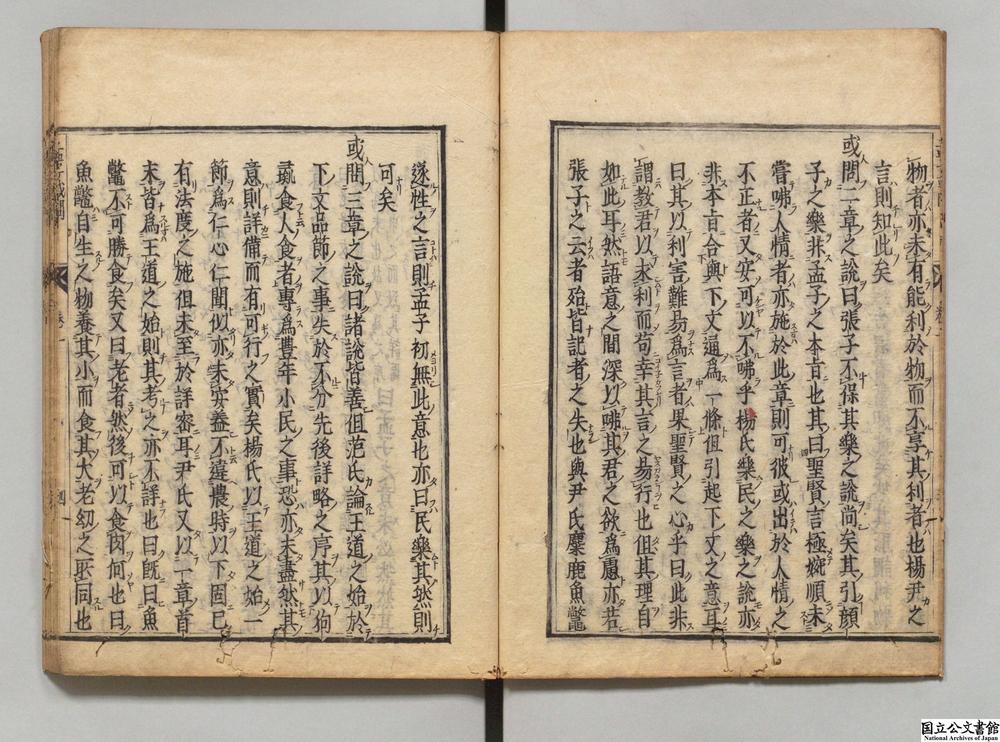 物者亦未有能利於物而不享其利者也楊尹之
言則知此矣
或問二章之說曰張子不保其樂之說尚矣其引顏
子之樂非孟子之本旨也其曰聖賢言極婉順未
嘗咈人情者亦施於此章則可彼或出於人情之
不正者又安可以不咈乎楊氏樂民之樂之說亦
非本旨合與下文通爲一條但引起下文之意耳
曰其以利害難易爲言者果聖賢之心乎曰此非
謂教君以求利而苟幸其言之易行也但其理自
如此耳然語意之間深以咈其君之欲爲慮亦若
張子之云者殆皆記者之失也與尹氏麋鹿魚鼈
遂性之言則孟子初無此意也亦曰民樂其然則
可矣
或問三章之說曰諸說皆善但范氏論王道之始於
下文品節之事失於不分先後詳略之序其以狗
彘食人食者專爲豐年小民之事恐亦未盡然其
意則詳備而有可行之實矣楊氏以王道之始一
節爲仁心仁聞似亦未安蓋不違農時以下固已
有法度之施但未至於詳密耳尹氏又以一章首
末皆爲王道之始則其考之亦不詳也曰旣曰魚
鼈不可勝食矣又曰老者然後可以食肉何也曰
魚鼈自生之物養其小而食其大老幼之所同也
国立公文書館
National Archives of Japan